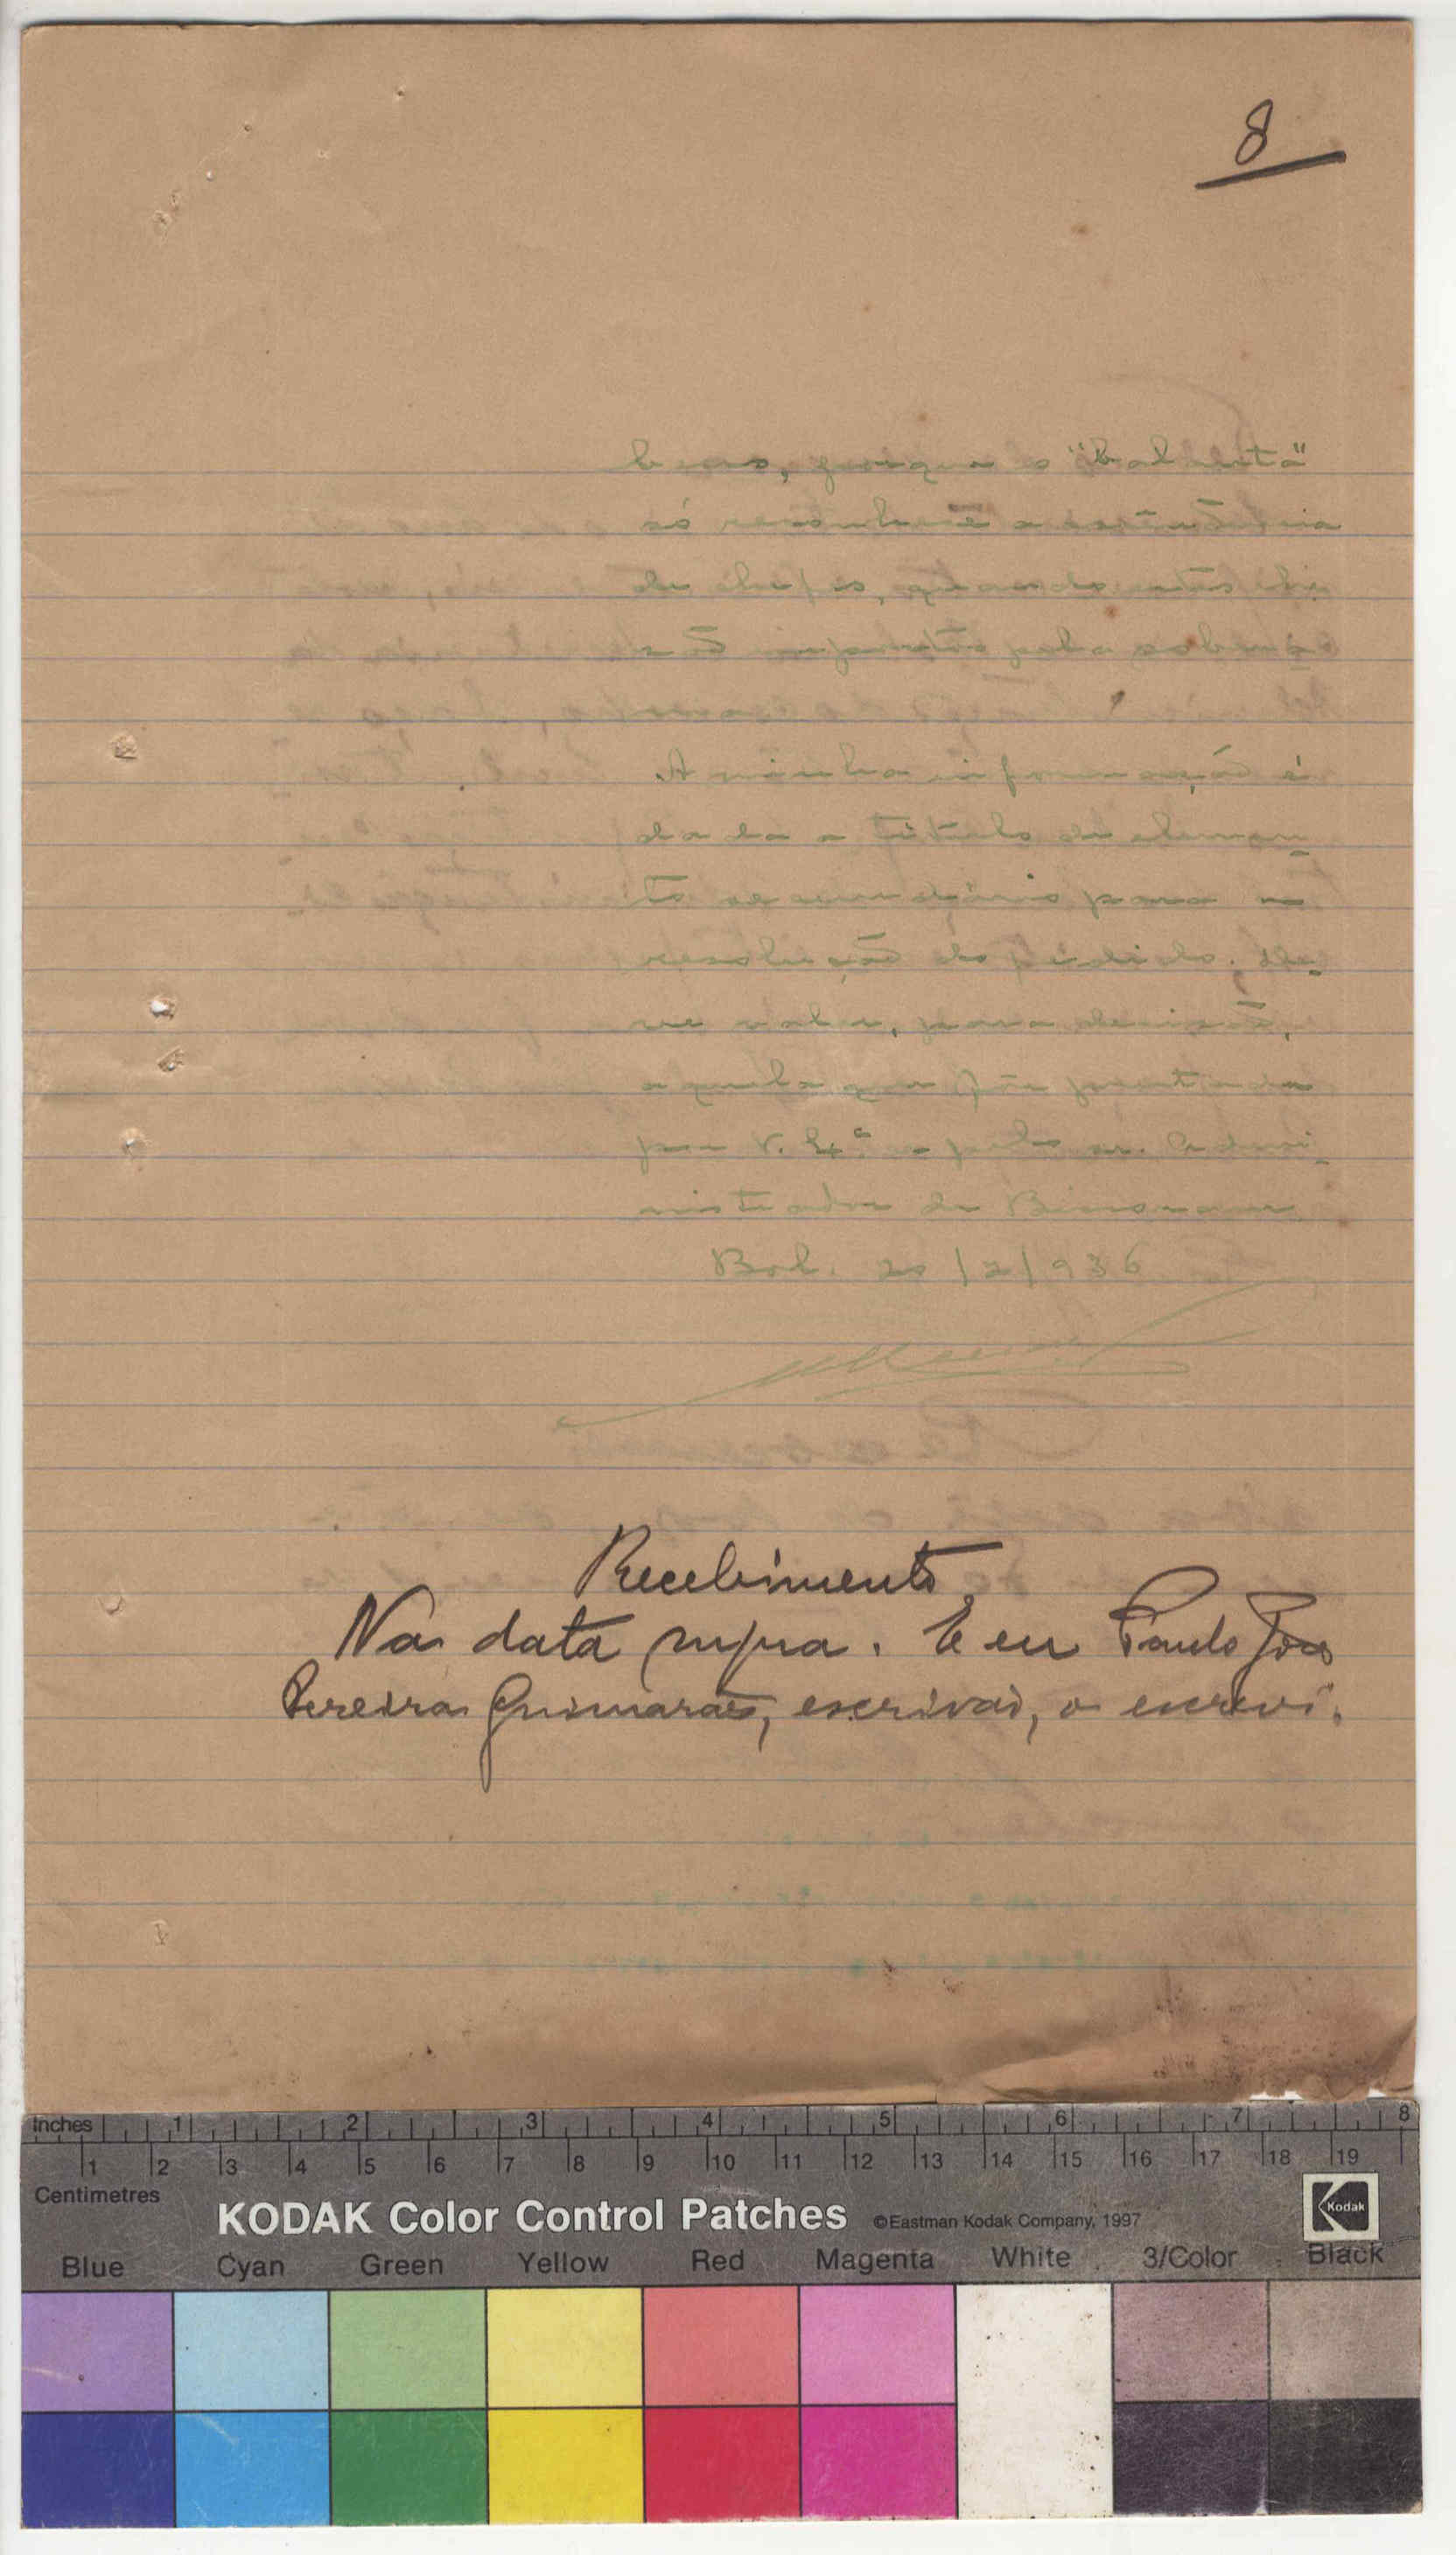 8
bens, porque o "balanta"
só reconhece a existência
de chefes, quando estes lhe
são impostos pela
A minha informação é
dada a título de elemen-
to secundário para a
resolução do pedido; de-
ve valer, para decisão,
aquela que fôr prestada
por V. Ex.ª e pelo sr. Admi-
nistrador de Bissoram
Bol. 20/2/936
Recebimento
Na data supra. E eu Paulo José
Pereira Guimarãis, escrivão, o escrevi.
Inches 1 2 3 4 5 6 7 8
1 2 3 4 5 6 7 8 9 10 11 12 13 14 15 16 17 18 19
Centimetres
KODAK Color Control Patches ©Eastman Kodak Company, 1997 Kodak
Blue Cyan Green Yellow Red Magenta White 3/Color Black